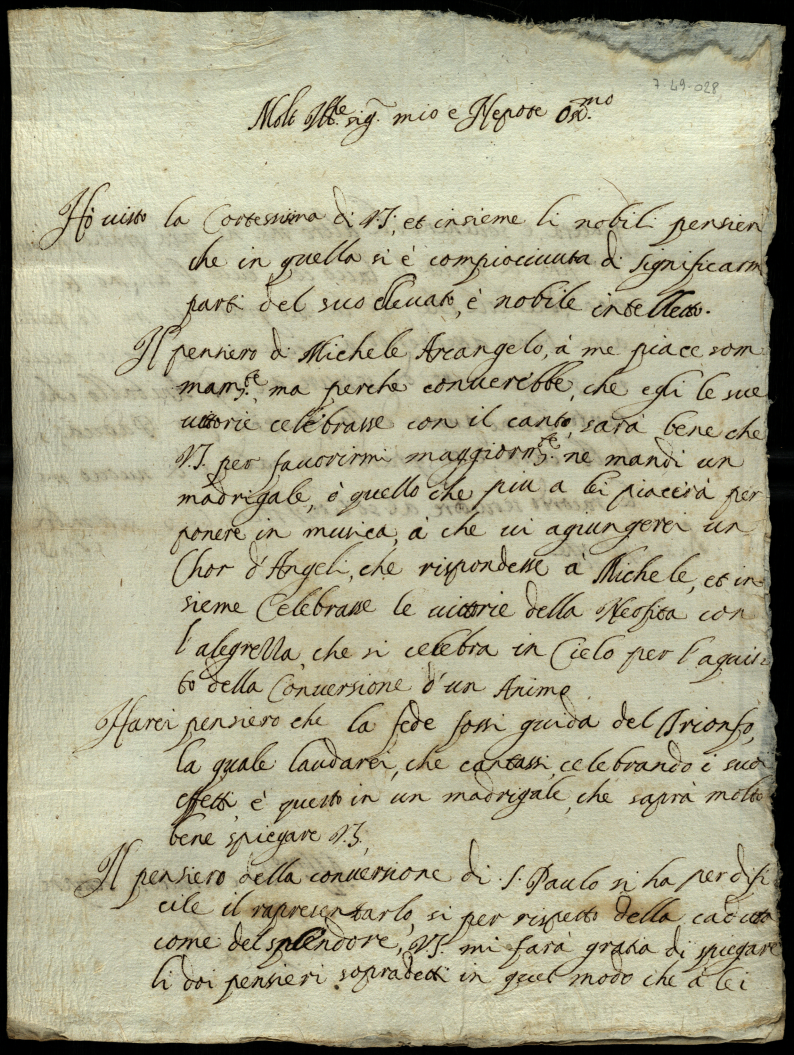 7-49-028
Molt Ill.re sig.r mio e Nepote oss.mo
Hò uisto la Cortesissima di V.S. et insieme li nobili pensieri
che in quella si è compiociuuta di significarmi
parti del suo eleuato, è nobile intelletto.
Il pensiero di Michele Arcangelo, à me piace som
mam.te, ma perche conuerebbe, che egli le sue
uittorie celebrasse con il canto, sarà bene che
V.S. per fauorirmi maggiorm.te ne mandi un
madrigale, ò quello che piu a lei piacerà per
ponere in musica, à che ui agiungerei un
Chor d'Angeli, che rispondesse à Michele, et in-
sieme Celebrasse le uittorie della Neofita con
l'alegrezza, che si celebra in Cielo per l'aquis-
to della Conuersione d'un Anima
Harei pensiero che la fede fossi guida del Trionfo,
la quale laudarei, che cantassi, celebrando i suoi
effetti, è questo in un madrigale, che saprà molto
bene spiegare V.S.
Il pensiero della conuersione di S. Paulo si ha per difi
cile il rapresentarlo, si per rispetto della caduta
come del splendore, V.S. mi farà grata di spiegare
li doi pensieri sopradetti in quel modo che à lei